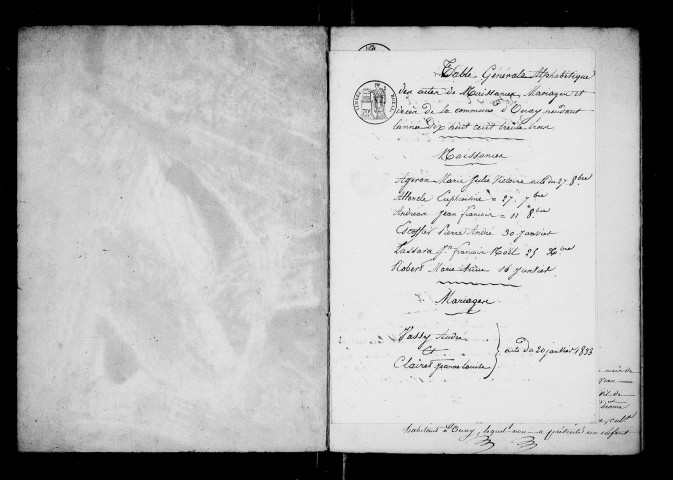 Table Générale Alphabétique
des actes de Naissances Mariages et
décès de la commune d'Oway pendant
l'année dix huit cent trente trois
Naissances
Ageron Marie Julie Victoire acte du 27 8bre
Allonche Euphrosine = 27. 7bre
Andrian Jean François = 11 8bre
Escoffier Pierre André 30 Janvier
Lassara Jn François Noël 25 Xbre
Robert Marie Anne 16 Janvier
Mariages
Vassy André
et
Claires Jeanne Louise
acte du 20 janvier 1833
habitant à, lequel nous a présenté un enfant